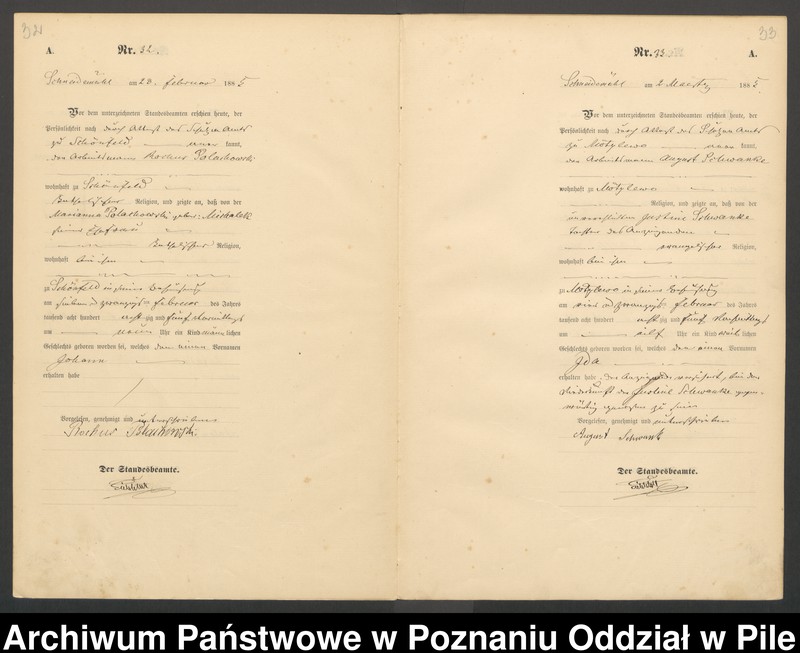 32
A.
Nr. 32.
Schneidemühl am 28. Februar 1885
Vor dem unterzeichneten Standesbeamten erschien heute, der
Persönlichkeit nach durch Attest des Schulzen Amts
zu Schönfeld, kannt,
der Arbeitsmann Rochus Polachowski
wohnhaft zu Schönfeld
katholischer Religion, und zeigte an, daß von der
Marianna Polachowski geborne Michalek
seiner Ehefrau
katholischer Religion,
wohnhaft bei ihm
zu Schönfeld in seiner Behausung
am sieben und zwanzigsten Februar des Jahres
tausend acht hundert achtzig und fünf Vormittags
um neun Uhr ein Kind männlichen
Geschlechts geboren worden sei, welches den einen Vornamen
Johann
erhalten habe
Vorgelesen, genehmigt und unterschrieben
Rochus
Der Standesbeamte.
33
Nr. 33.
A.
Schneidemühl am 2 Maerz 1885.
Vor dem unterzeichneten Standesbeamten erschien heute, der
Persönlichkeit nach durch Attest des Schulzen Amts
zu Motylewo kannt,
der Arbeitsmann August Schwanke
wohnhaft zu Motylewo
Religion, und zeigte an, daß von der
unverehelichten Justine Schwanke
Tochter des Anzeigenden
evangelischer Religion,
wohnhaft bei ihm
zu Motylewo in seiner Behausung
am vier und zwanzigsten Februar des Jahres
tausend acht hundert achtzig und fünf Nachmittags
um eilf Uhr ein Kind weiblichen
Geschlechts geboren worden sei, welches den einen Vornamen
Ida
erhalten habe. Der Anzeigende versichert, bei der
Niederkunft der Justine Schwanke gegen-
wärtig gewesen zu sein.
Vorgelesen, genehmigt und unterschrieben
August Schwank
Der Standesbeamte.
Archiwum Państwowe w Poznaniu Oddział w Pile